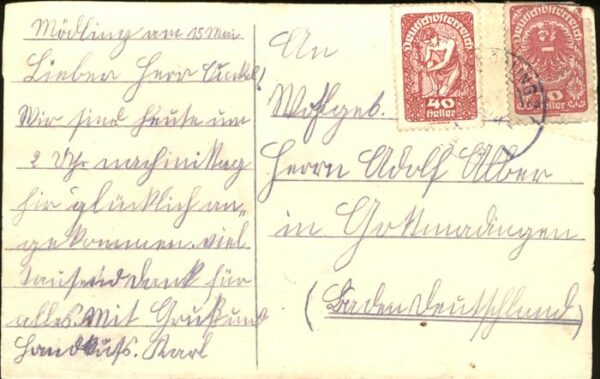 Mödling am 15 Mai
Lieber Herr Onkel!
Wir sind heute um
2 Uhr nachmittag
hir glücklich an-
gekommen. viel
tausend dank für
alles. Mit Gruß und
Handkuss. Karl
An
Wohlgeb.
Herrn Adolf Alber
in Gottmadingen
(Baden Deutschland)
Deutschösterreich
40
Heller
Deutschösterreich